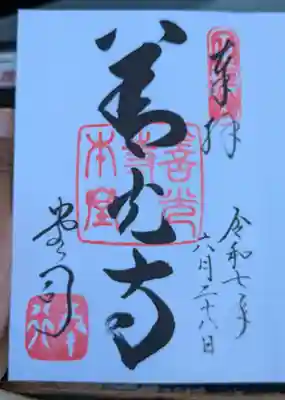 奉拝
善光寺
令和七年
六月二十八日
堂司